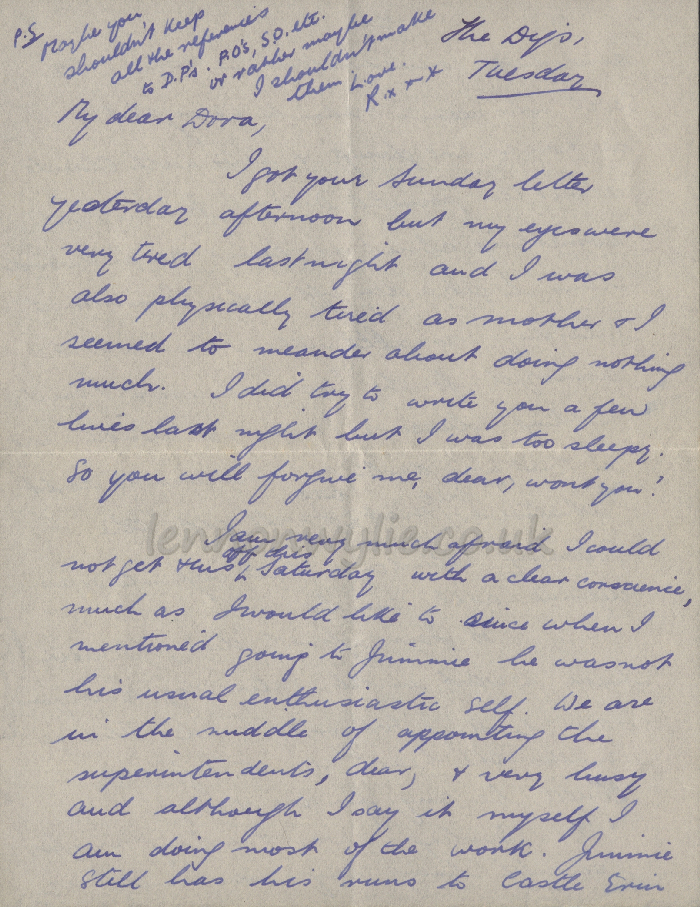 P.S Maybe you
shouldn't keep
all the references
to D.P's. P.O's, S.O. etc.
or rather maybe
I shouldn't make
them Love.
R. x x x
The Digs,
Tuesday
My dear Dora,
I got your Sunday letter
yesterday afternoon but my eyes were
very tired last night and I was
also physically tired as mother & I
seemed to meander about doing nothing
much. I did try to write you a few
lines last night but I was too sleepy.
So you will forgive me, dear, won't you?
lennonwylie.co.uk
I am very much afraid I could
off this
not get this Saturday with a clear conscience,
much as I would like to since when I
mentioned going to Jimmie he was not
his usual enthusiastic self. We are
in the middle of appointing the
superintendents, dear, & very busy
and although I say it myself I
am doing most of the work. Jimmie
still has his runs to Castle Erin